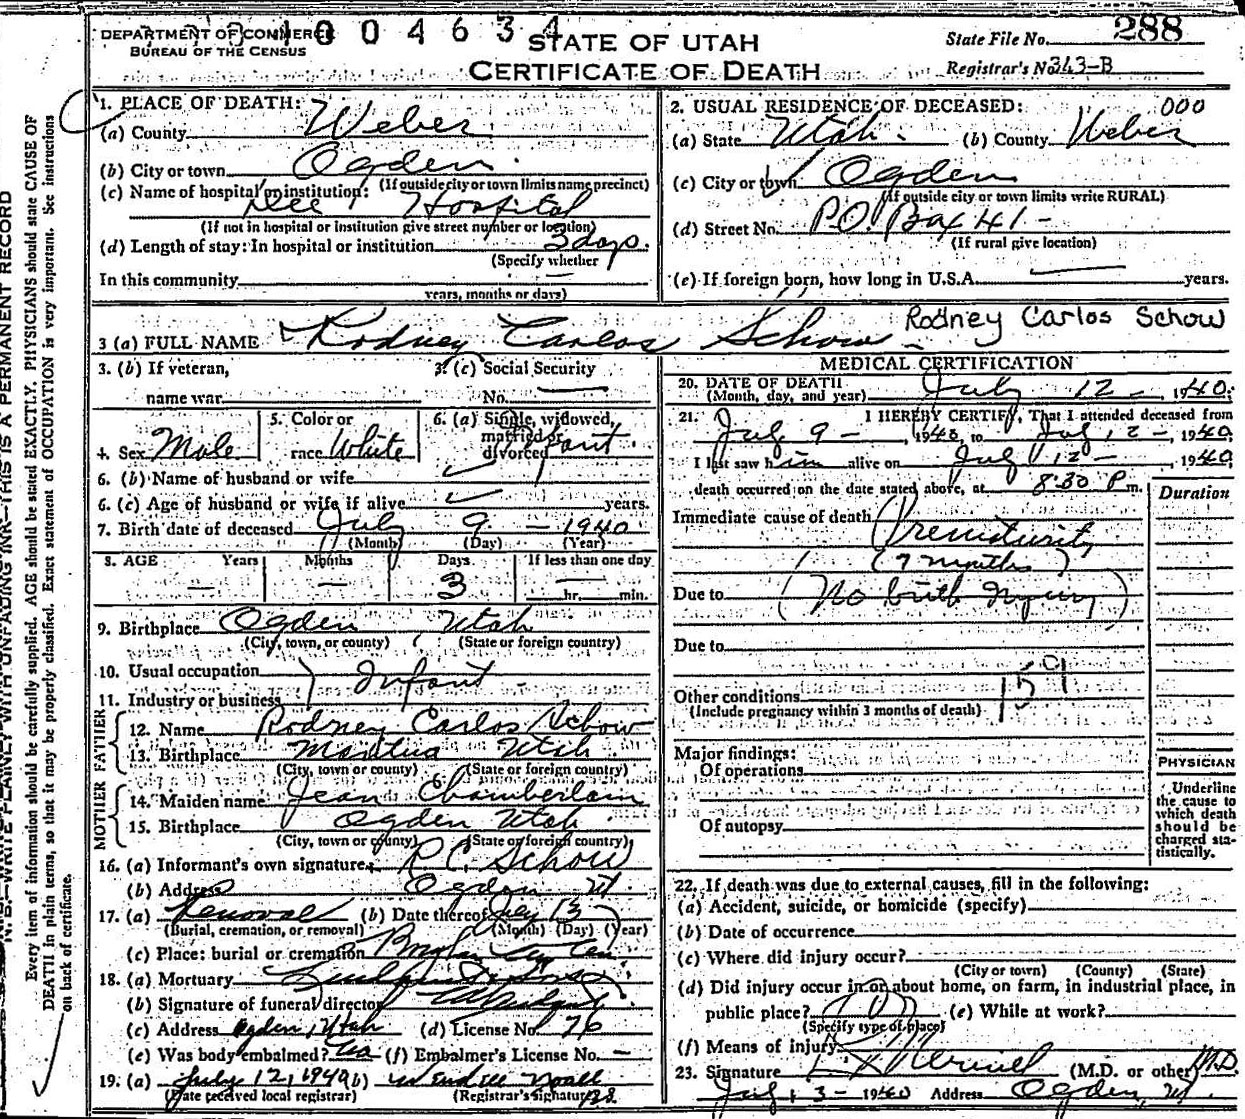 DEPARTMENT OF COMMERCE
BUREAU OF THE CENSUS
1004634
STATE OF UTAH
CERTIFICATE OF DEATH
State File No. 288
Registrar's No. 343-B
1. PLACE OF DEATH:
(a) County Weber
(b) City or town Ogden
(If outside city or town limits name precinct)
(c) Name of hospital or institution:
Dee Hospital
(If not in hospital or institution give street number or location)
(d) Length of stay: In hospital or institution 3 days.
(Specify whether
In this community
years, months or days)
2. USUAL RESIDENCE OF DECEASED: 000
(a) State Utah. (b) County Weber
(c) City or town Ogden
(If outside city or town limits write RURAL)
(d) Street No. P.O. Box 41-
(If rural give location)
(e) If foreign born, how long in U.S.A. years.
3 (a) FULL NAME Rodney Carlos Schow Rodney Carlos Schow
3. (b) If veteran,
name war
3. (c) Social Security
No.
4. Sex Male
5. Color or
race White
6. (a) Single, widowed,
married or
divorced Infant.
6. (b) Name of husband or wife
6. (c) Age of husband or wife if alive years.
7. Birth date of deceased July 9 - 1940
(Month) (Day) (Year)
8. AGE Years Months Days If less than one day
— — 3 hr. min.
9. Birthplace Ogden Utah
(City, town, or county) (State or foreign country)
10. Usual occupation Infant
11. Industry or business
FATHER
12. Name Rodney Carlos Schow
13. Birthplace Mantua Utah
(City, town or county) (State or foreign country)
MOTHER
14. Maiden name Jean Chamberlain
15. Birthplace Ogden Utah
(City, town or county) (State or foreign country)
16. (a) Informant's own signature R.C. Schow
(b) Address Ogden Ut
17. (a) Removal (b) Date thereof July 13
(Burial, cremation, or removal) (Month) (Day) (Year)
(c) Place: burial or cremation Brigham City Cem.
18. (a) Mortuary
(b) Signature of funeral director
(c) Address Ogden, Utah (d) License No. 76
(e) Was body embalmed? (f) Embalmer's License No. –
19. (a) July 12, 1940 (b) Wendell Noall
(Date received local registrar) (Registrar's signature)
MEDICAL CERTIFICATION
20. DATE OF DEATH
(Month, day, and year) July 12 -, 1940
21. I HEREBY CERTIFY, That I attended deceased from
July 9 -, 1940, to July 12 -, 1940
I last saw him alive on July 12 - 1940
death occurred on the date stated above, at 8:30 P m.
Duration
Immediate cause of death Prematurity
(7 months)
Due to (No birth Injury)
Due to
159
Other conditions
(Include pregnancy within 3 months of death)
Major findings:
Of operations
Of autopsy
PHYSICIAN
Underline
the cause to
which death
should be
charged sta-
tistically.
22. If death was due to external causes, fill in the following:
(a) Accident, suicide, or homicide (specify)
(b) Date of occurrence
(c) Where did injury occur?
(City or town) (County) (State)
(d) Did injury occur in or about home, on farm, in industrial place, in
public place? (e) While at work?
(Specify type of place)
(f) Means of injury
23. Signature (M.D. or other) M.D.
July 13 - 1940 Address Ogden, Ut.
N.B.—WRITE PLAINLY WITH UNFADING INK—THIS IS A PERMANENT RECORD
Every item of information should be carefully supplied. AGE should be stated EXACTLY. PHYSICIANS should state CAUSE OF
DEATH in plain terms, so that it may be properly classified. Exact statement of OCCUPATION is very important. See instructions
on back of certificate.